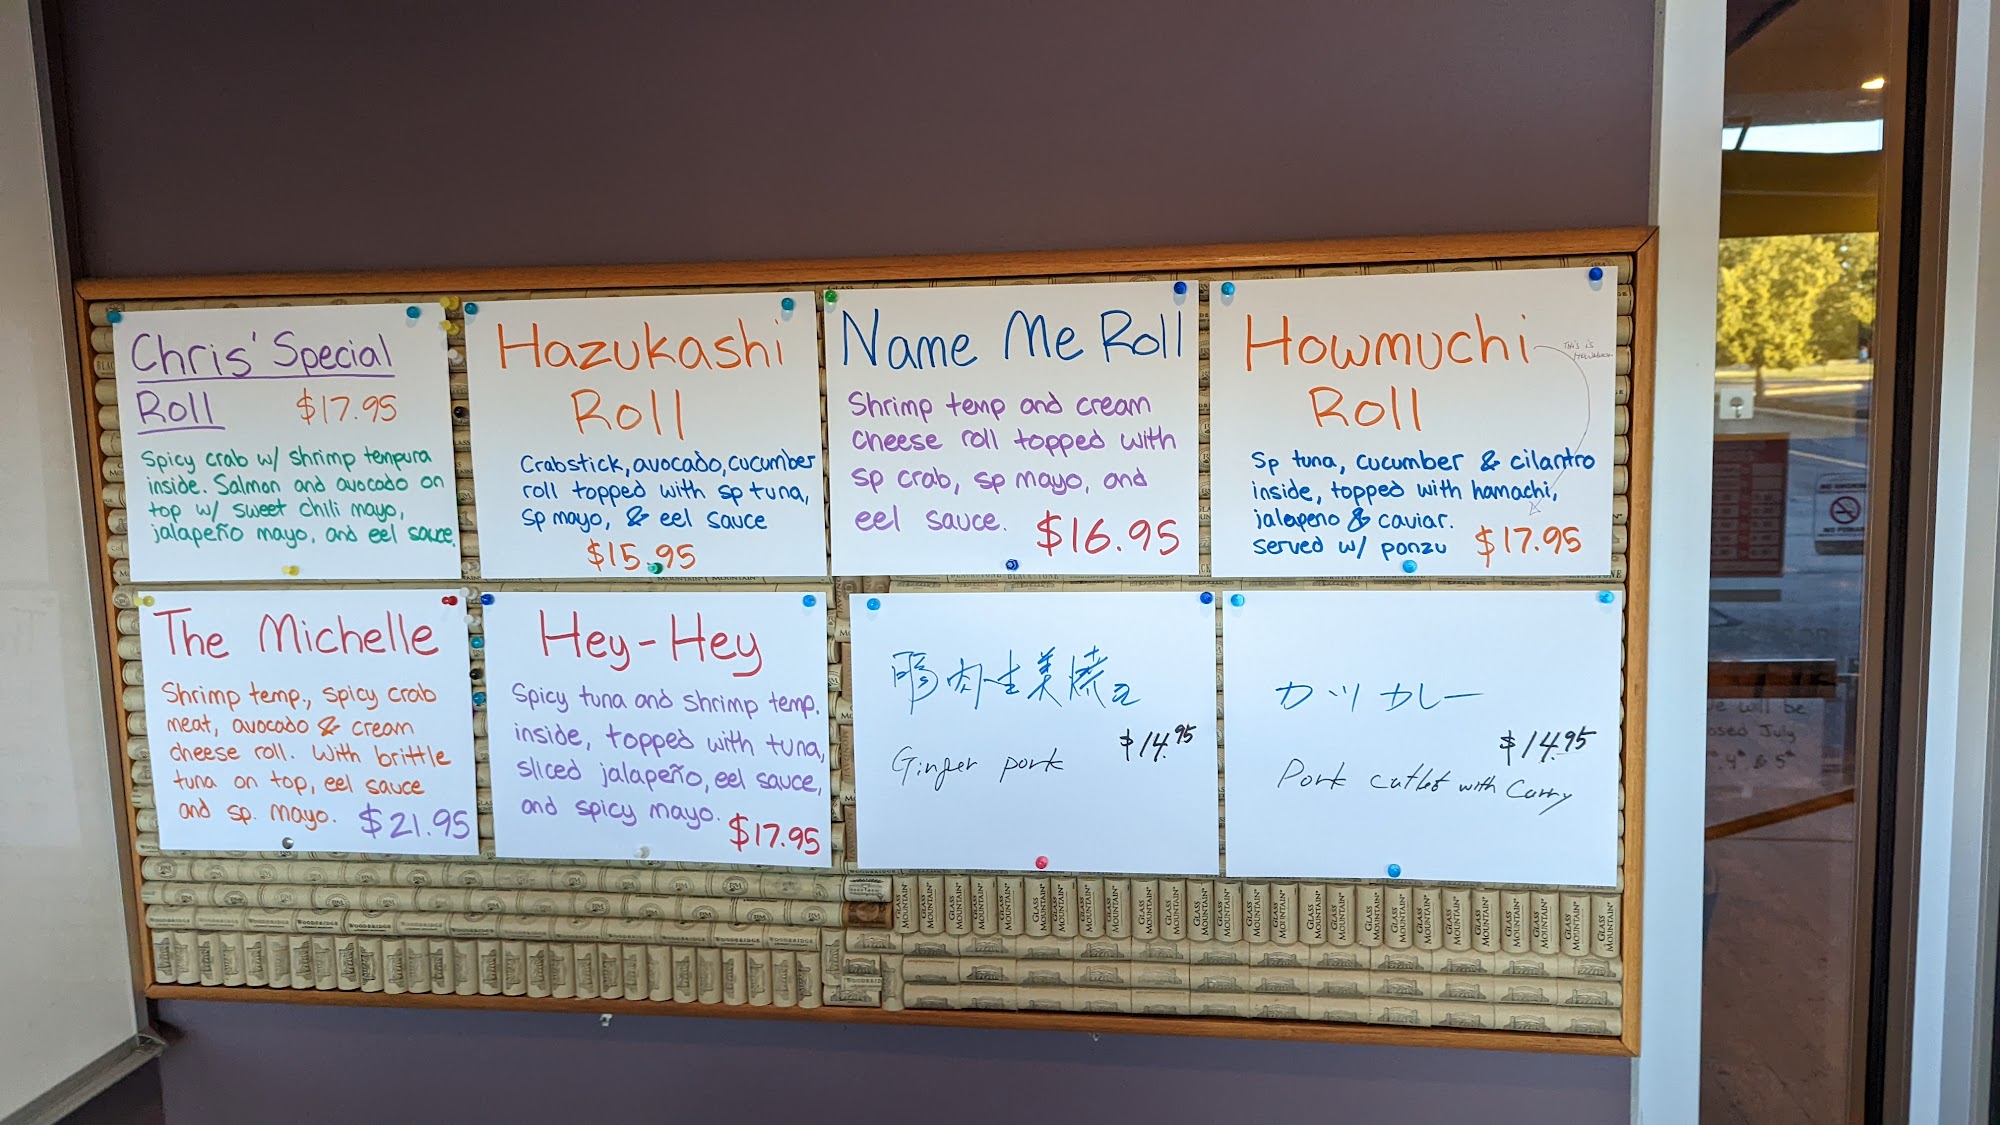 Chris' Special
Roll $17.95
Spicy crab w/ shrimp tempura
inside. Salmon and avocado on
top w/ sweet chili mayo,
jalapeño mayo, and eel sauce.
Hazukashi
Roll
Crabstick, avocado, cucumber
roll topped with sp tuna,
sp mayo, & eel sauce
$15.95
Name Me Roll
Shrimp temp and cream
cheese roll topped with
sp crab, sp mayo, and
eel sauce. $16.95
Howmuchi
Roll
This is
Sp tuna, cucumber & cilantro
inside, topped with hamachi,
jalapeno & caviar.
served w/ ponzu $17.95
The Michelle
Shrimp temp., spicy crab
meat, avocado & cream
cheese roll. With brittle
tuna on top, eel sauce
and sp. mayo. $21.95
Hey-Hey
Spicy tuna and shrimp temp.
inside, topped with tuna,
sliced jalapeño, eel sauce,
and spicy mayo. $17.95
豚肉生姜焼き
$14.95
Ginger pork
カツカレー
$14.95
Pork cutlet with Curry
GLASS MOUNTAIN
WOODBRIDGE
NO SMOKING
we will be
closed July
4th & 5th